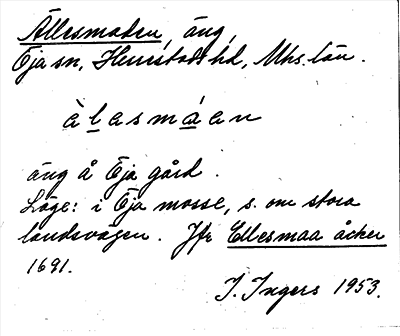 Ällesmaden, äng,
Öja sn, Herrestads hd, Mhs. län.
àlesmáen
äng å Öja gård.
Läge: i Öja mosse, s. om stora
landsvägen. Jfr Ellesmaa åcker
1691.
I. Ingers 1953.